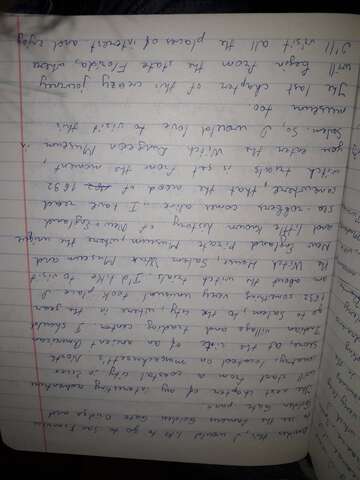 this, I would like to go to San Francisco
to see the famous Golden Gate Bridge and
Golden Gate park.
The next chapter of my interesting adventure
will start from a coastal city in Essex
country, located, massachusetts, North
Shore, at the site of an ancient American
Indian village and trading center. I should
go to Salem, to the city, where in the year
1692 something very unusual took place. I
am about the witch trials. I'd like to visit
the Witch House, Salem Wax Museum and
New England Pirate Museum, where the unique
and little known history of New England
sea-robbers comes alive. I have read
somewhere that the mood of 1692
witch traials is felt from the moment,
you enter the Witch Dungeon Museum in
Salem, So, I would love to visit this
museum too.
The last chapter of this crazy journey
will begin from the state Florida, where
I'll visit all the places of interest and enjoy